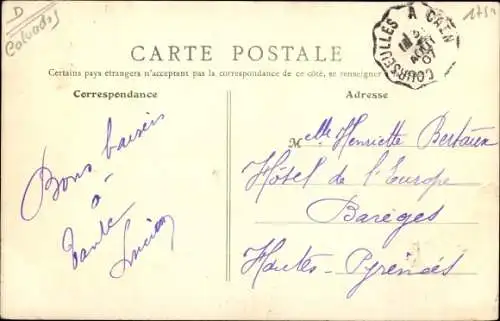 D
Calvados
1751
COURSEULLES A CAEN
AOUT
07
CARTE POSTALE
Certains pays étrangers n'acceptent pas la correspondance de ce côté, se renseigner
Correspondance
Adresse
Bons baisers
à
Tante
Lucien
Melle Henriette Bertaux
Hôtel de l'Europe
Barèges
Hautes-Pyrénées